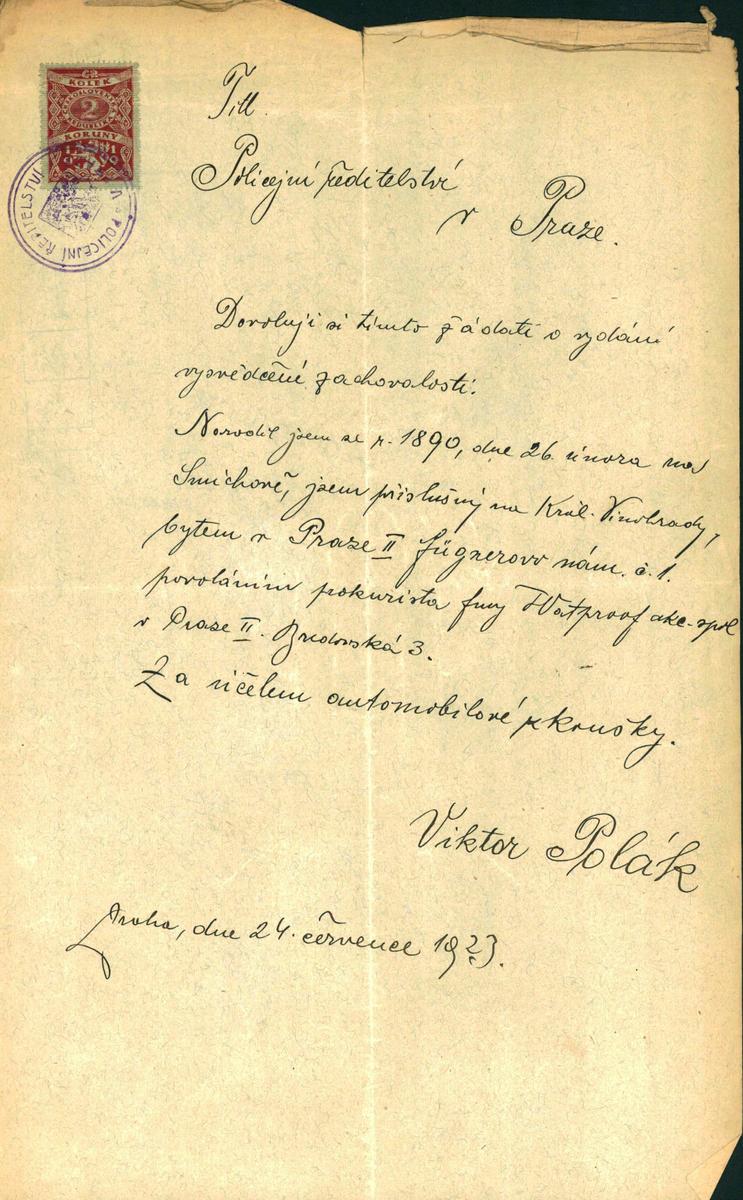 KOLEK
2
KORUNY
POLICEJNÍ ŘEDITELSTVÍ V
Titl.
Policejní ředitelství
v Praze.
Dovoluji si tímto žádati o vydání
vysvědčení zachovalosti.
Narodil jsem se r. 1890, dne 26. února na
Smíchově, jsem příslušný na Král. Vinohrady,
bytem v Praze II Fügnerovo nám. č. 1.
povoláním pokurista fmy Watproof akc. spol
v Praze II. Bredovská 3.
Za účelem automobilové zkoušky.
Viktor Polák
Praha, dne 24. července 1923.